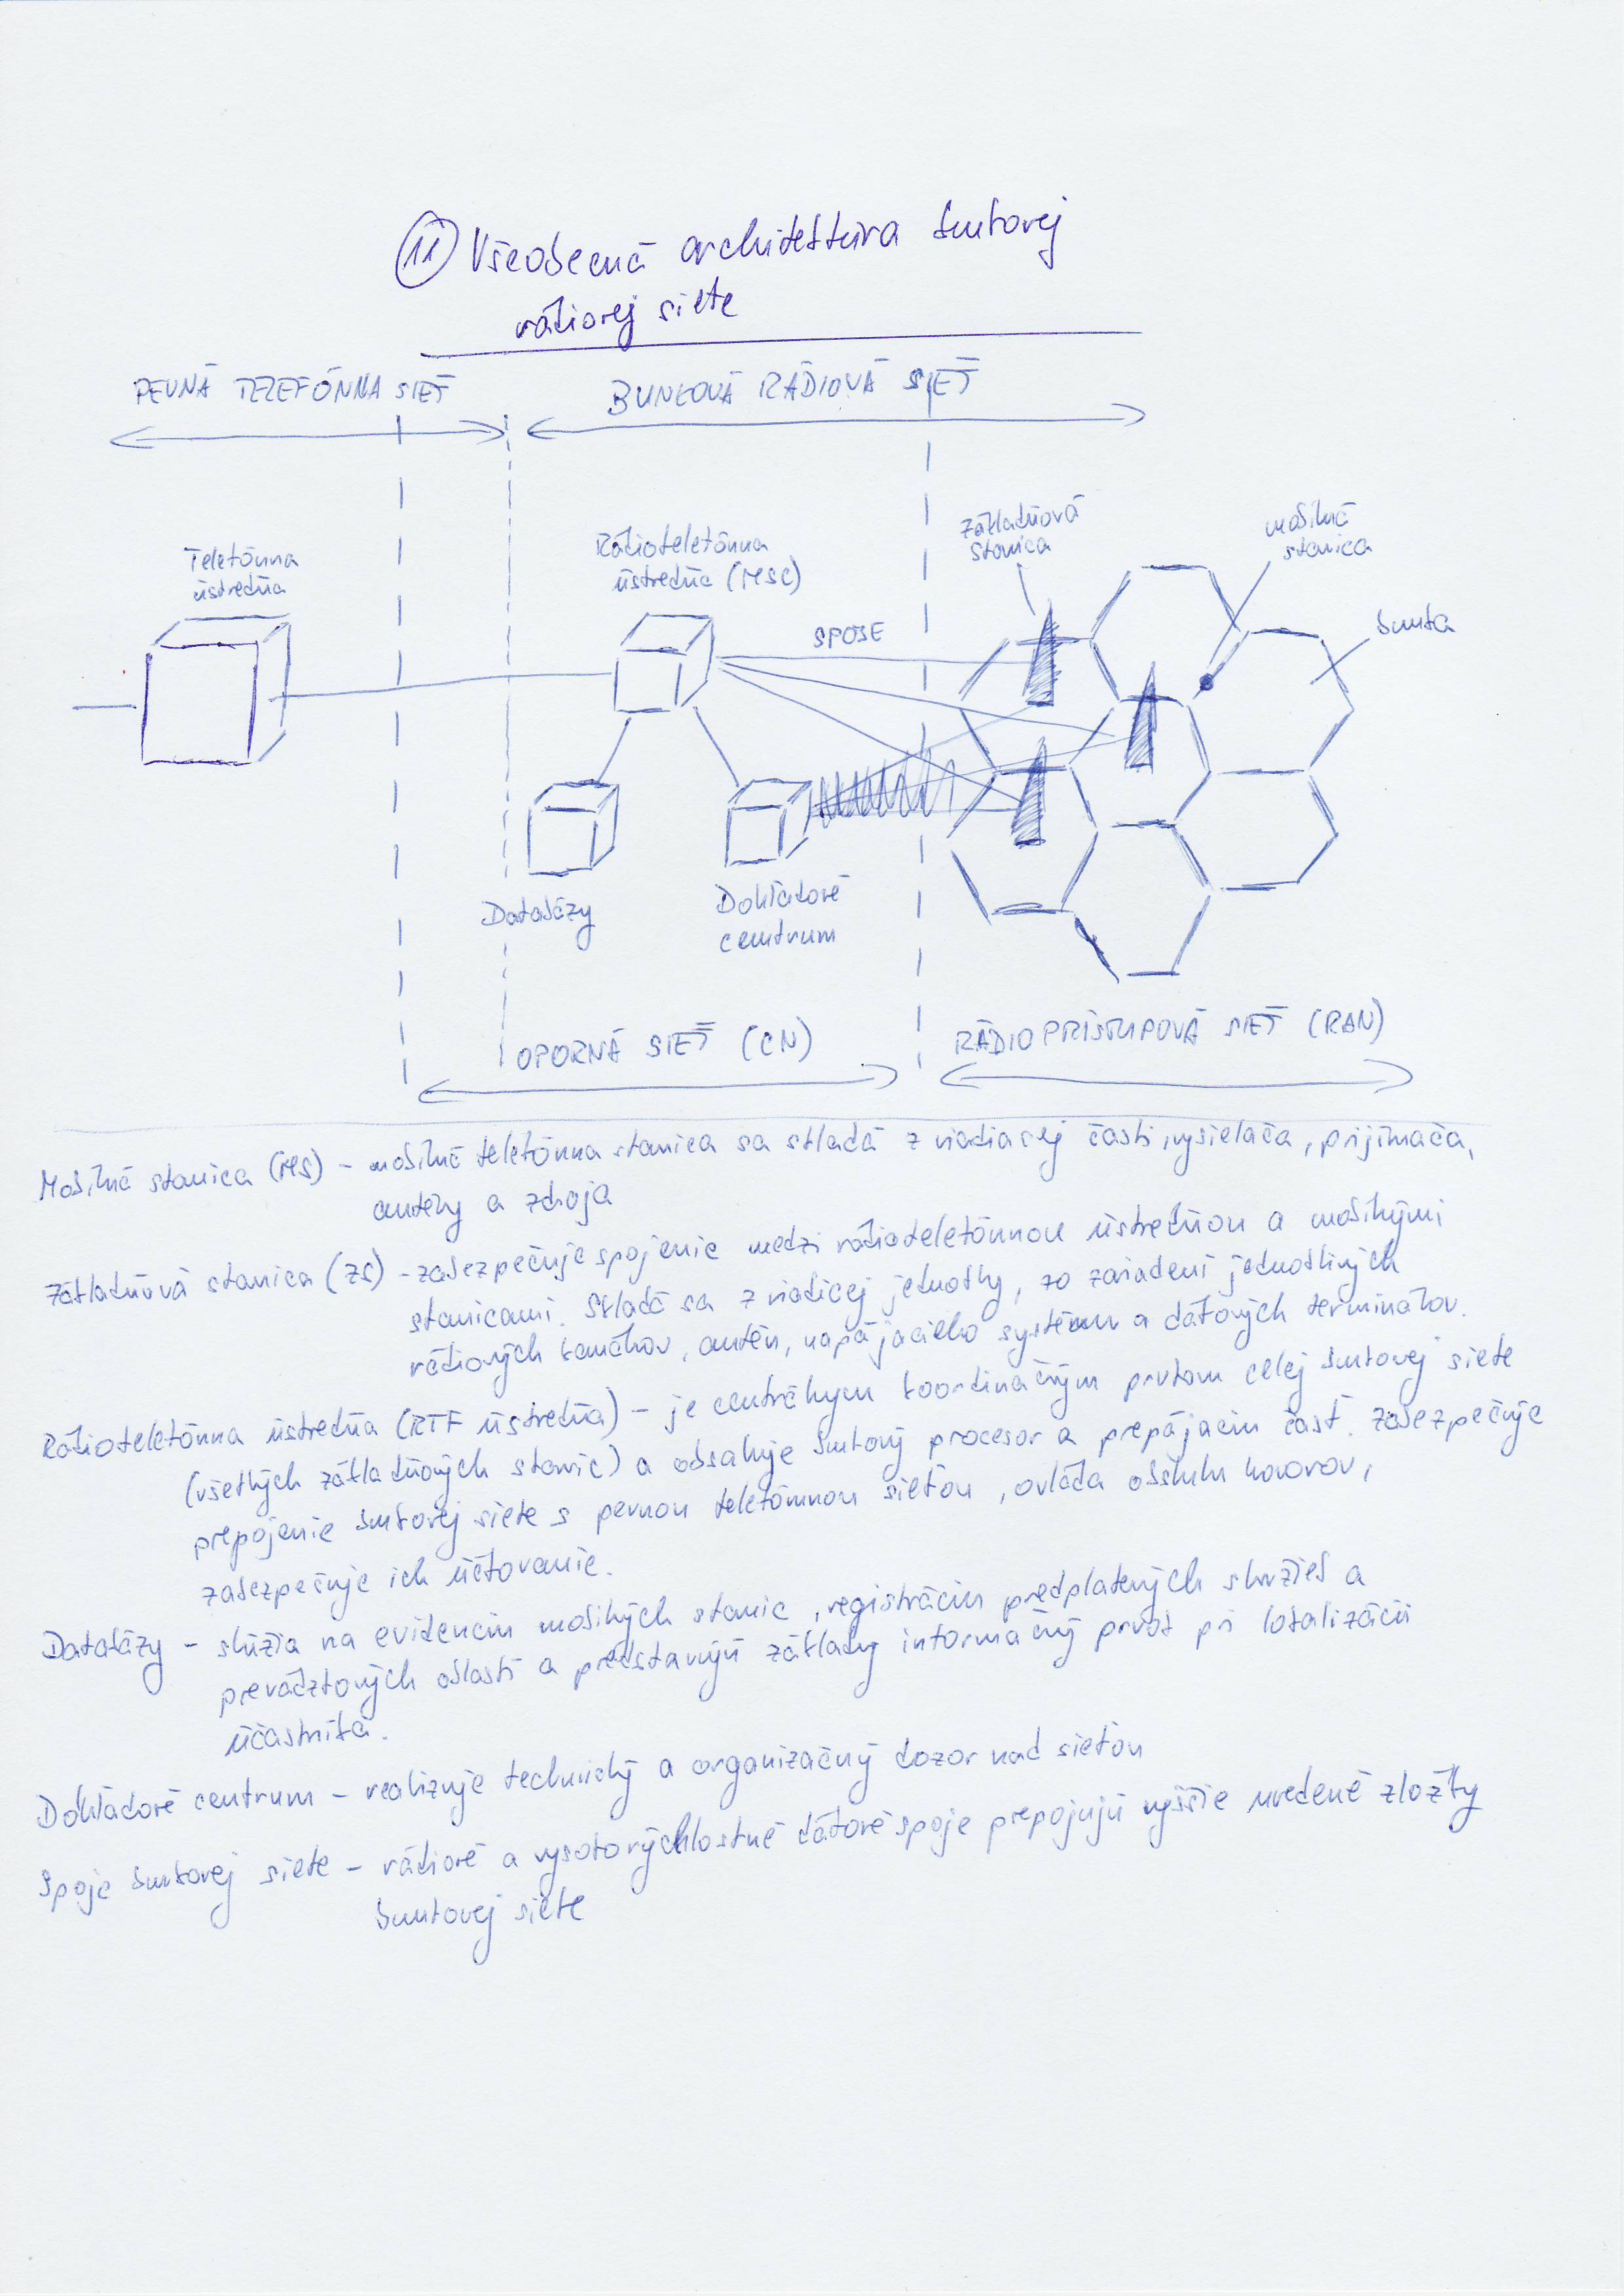 11 Všeobecná architektúra bunkovej
rádiovej siete
PEVNÁ TELEFÓNNA SIEŤ
BUNKOVÁ RÁDIOVÁ SIEŤ
Telefónna
ústredňa
Rádiotelefónna
ústredňa (MSC)
SPOJE
základňová
stanica
mobilná
stanica
bunka
Databázy
Dohľadové
centrum
OPORNÁ SIEŤ (CN)
RÁDIOPRÍSTUPOVÁ SIEŤ (RAN)
Mobilná stanica (MS) - mobilná telefónna stanica sa skladá z riadiacej časti, vysielača, prijímača,
antény a zdroja
Základňová stanica (ZS) - zabezpečuje spojenie medzi rádiotelefónnou ústredňou a mobilnými
stanicami. Skladá sa z riadiacej jednotky, zo zariadení jednotlivých
rádiových kanálov, antén, napájacieho systému a dátových terminálov.
Rádiotelefónna ústredňa (RTF ústredňa) - je centrálnym koordinačným prvkom celej bunkovej siete
(všetkých základňových staníc) a obsahuje bunkový procesor a prepájaciu časť. Zabezpečuje
prepojenie bunkovej siete s pevnou telefónnou sieťou, ovláda obsluhu hovorov,
zabezpečuje ich účtovanie.
Databázy - slúžia na evidenciu mobilných staníc, registráciu predplatených služieb a
prevádzkových oblastí a predstavujú základný informačný prvok pri lokalizácii
účastníka.
Dohľadové centrum - realizuje technický a organizačný dozor nad sieťou
Spoje bunkovej siete - rádiové a vysokorýchlostné dátové spoje prepojujú vyššie uvedené zložky
bunkovej siete